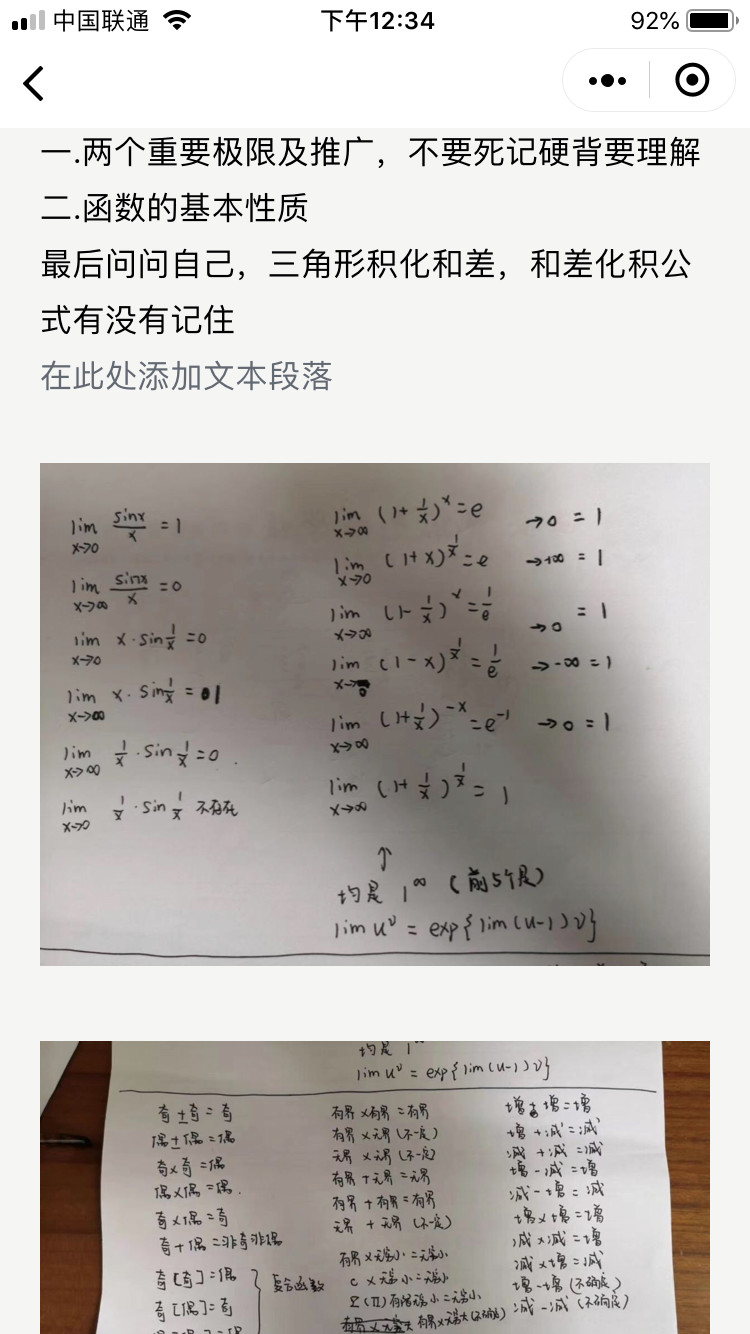 中国联通 下午12:34 92%
一.两个重要极限及推广，不要死记硬背要理解
二.函数的基本性质
最后问问自己，三角形积化和差，和差化积公
式有没有记住
在此处添加文本段落
lim x→0 sinx/x = 1
lim x→∞ sinx/x = 0
lim x→0 x·sin 1/x = 0
lim x→∞ x·sin 1/x = 1
lim x→∞ 1/x·sin 1/x = 0
lim x→0 1/x·sin 1/x 不存在
lim x→∞ (1+1/x)^x = e →0 = 1
lim x→0 (1+x)^(1/x) = e →+∞ = 1
lim x→∞ (1-1/x)^x = 1/e →0 = 1
lim x→0 (1-x)^(1/x) = 1/e →-∞ = 1
lim x→∞ (1+1/x)^(-x) = e^(-1) →0 = 1
lim x→∞ (1+1/x)^(1/x) = 1
↑
均是 1^∞ (前5个是)
lim u^v = exp{lim(u-1)v}
均是 1^∞
lim u^v = exp{lim(u-1)v}
奇±奇=奇
偶±偶=偶
奇×奇=偶
偶×偶=偶.
奇×偶=奇
奇+偶=非奇非偶
奇[奇]=偶
奇[偶]=奇
复合函数
有界×有界=有界
有界×无界(不一定)
无界×无界(不一定)
有界+无界=无界
有界+有界=有界
无界+无界(不一定)
有界×无穷小=无穷小
C×无穷小=无穷小
Σ(Π)有限无穷小=无穷小
有界×无穷大(不确定)
增+增=增
增+减=减
减+减=减
增-减=增
减-增=减
增×增=增
减×减=增
减×增=减
增-增(不确定)
减-减(不确定)